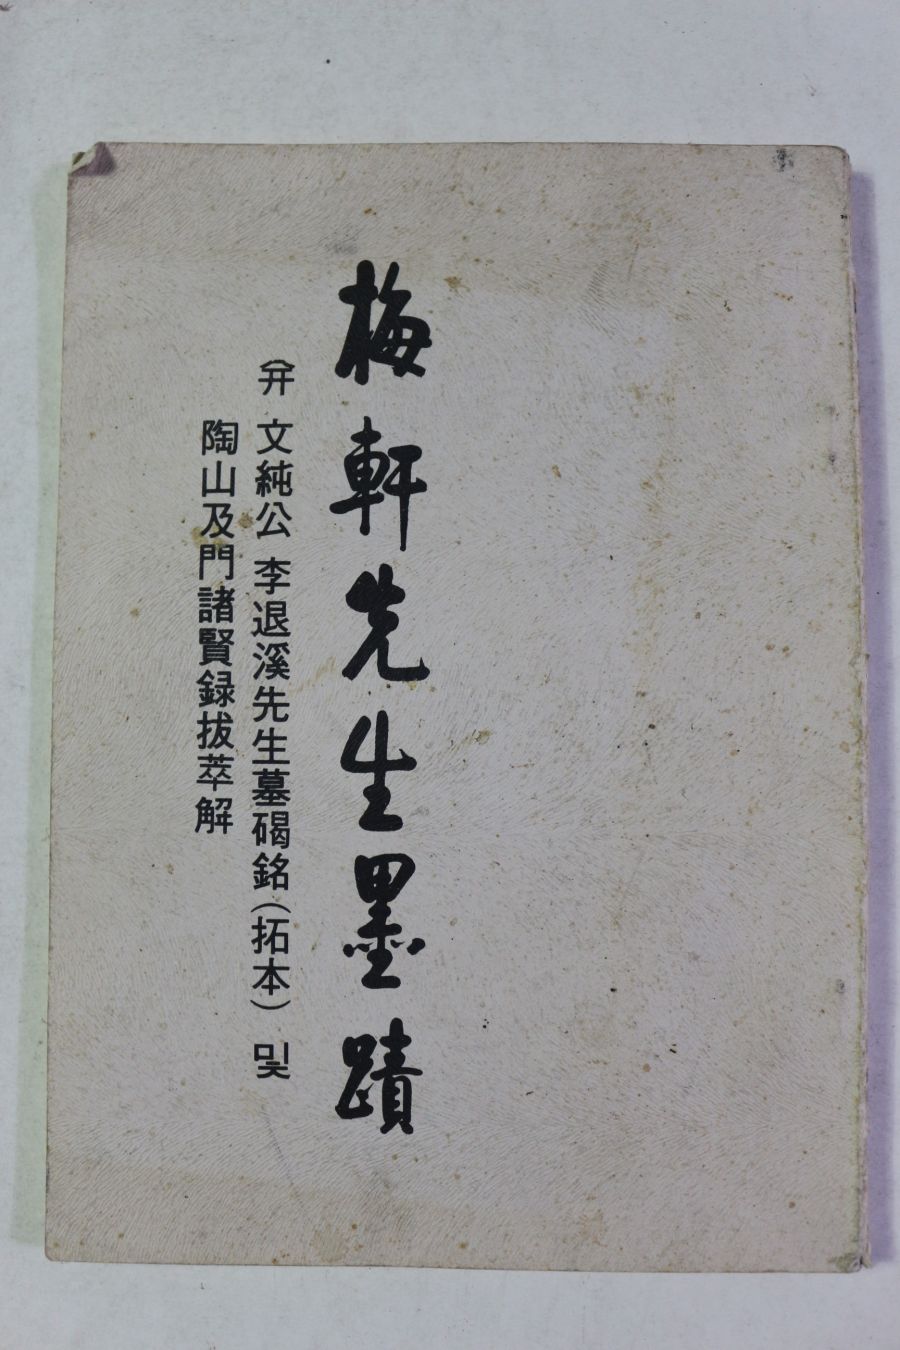 梅軒先生墨蹟
(弁 文純公 李退溪先生墓碣銘(拓本) 및
陶山及門諸賢録拔萃解